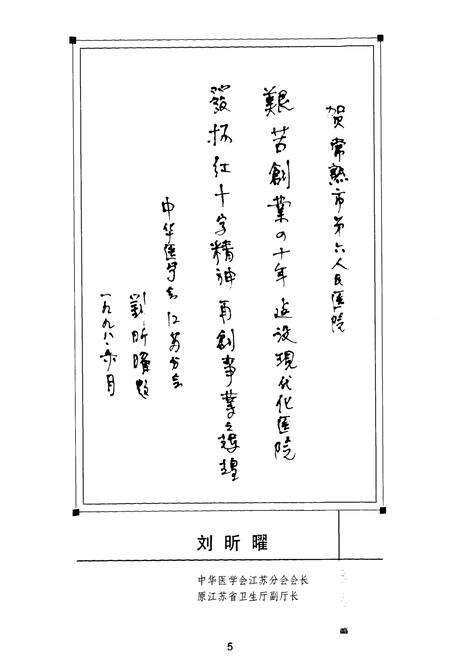 贺常熟市第六人民医院
艱苦創業四十年 建设現代化医院
發揚红十字精神 再創事業之輝煌
中华医学会江苏分会
刘昕曜题
一九九八.六月
刘昕曜
中华医学会江苏分会会长
原江苏省卫生厅副厅长
5